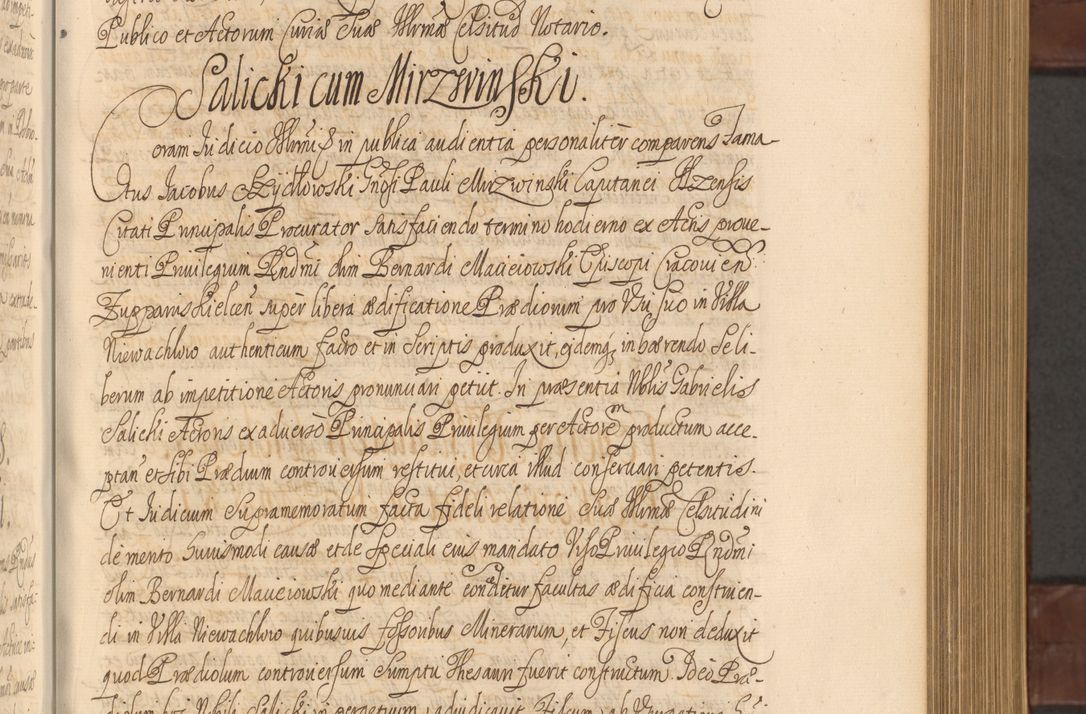 Publico et Actorum Curiæ Suæ Illrmæ Celsitud Notario.
Salicki cum Mirzwinski.
Coram Judicio Illrmi &c in publica audientia personalitèr comparens Fama-
tus Jacobus Szydłowski Gnosi Pauli Mirzwinski Capitanei Ilzensis
Citati Principalis Procurator satisfaciendo termino hodierno ex Actis prove-
nienti Privilegium Rndmi olim Bernardi Macieiowski Episcopi Cracovien
Zupparis Kielcen super libera ædificatione Prædiorum pro Usu suo in Villa
Niewachlow authenticum facto et in scriptis produxit, eidemq inhærendo se li-
berum ab impetitione Actoris pronunciari petiit. In præsentia Nblis Gabrielis
Salicki Actoris ex adverso Principalis Privilegium per Actorem productum acce-
ptan et sibi Prædium controversum restitui, et circa illud conservari petentis.
Et Judicium Supramemoratum facta fideli relatione Suæ Illrmæ Celsitudini
de merito huiusmodi causæ et de speciali eius mandato Viso Privilegio Rndmi
olim Bernardi Macieiowski quo mediante conditur facultas ædificia construen-
di in Villa Niewachlow quibusvis fossoribus Minerarum, et Fiscus non deduxit
quod Prædiolum controversum sumptu Thesauri fuerit constructum. Ideo Præ-
diolum hoc Nobili Salicki in perpetuum adiudicavit, Fiscum ab